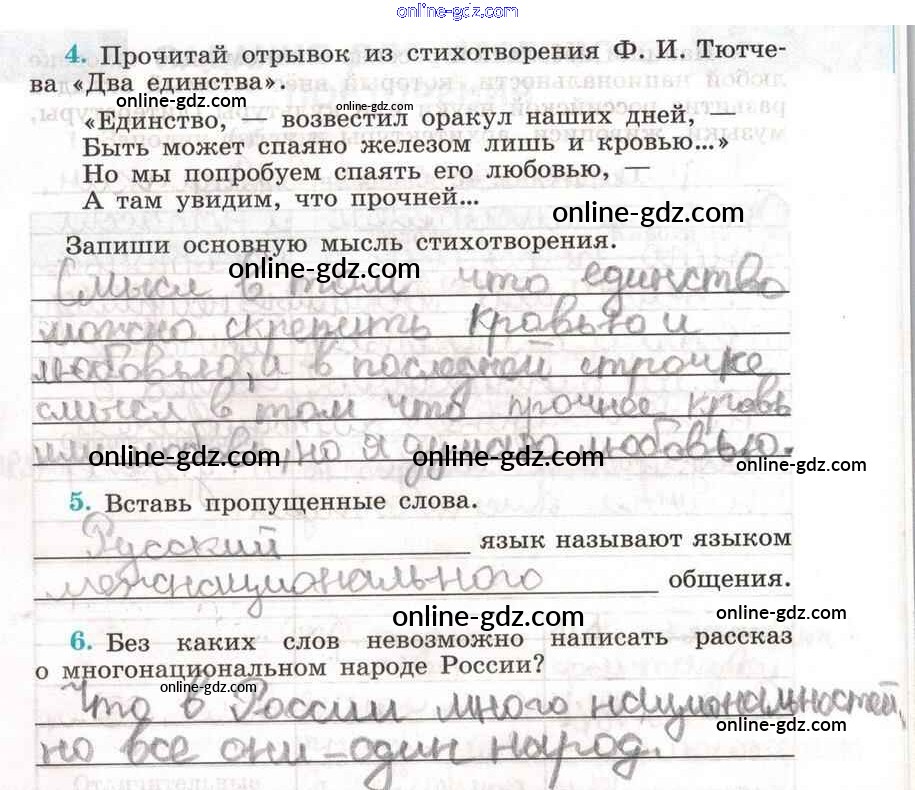 online-gdz.com
4. Прочитай отрывок из стихотворения Ф. И. Тютче-
ва «Два единства».
online-gdz.com
online-gdz.com
«Единство, — возвестил оракул наших дней, —
Быть может спаяно железом лишь и кровью...»
Но мы попробуем спаять его любовью, —
А там увидим, что прочней...
online-gdz.com
Запиши основную мысль стихотворения.
online-gdz.com
Смысл в том что единство
можно скрепить кровью и
любовью, и в последней строчке
смысл в том что прочнее кровь
или но я думаю любовью.
online-gdz.com online-gdz.com online-gdz.com
5. Вставь пропущенные слова.
Русский язык называют языком
межнационального общения.
online-gdz.com online-gdz.com
6. Без каких слов невозможно написать рассказ
о многонациональном народе России?
online-gdz.com
Что в России много национальностей,
online-gdz.com
но все они – один народ.